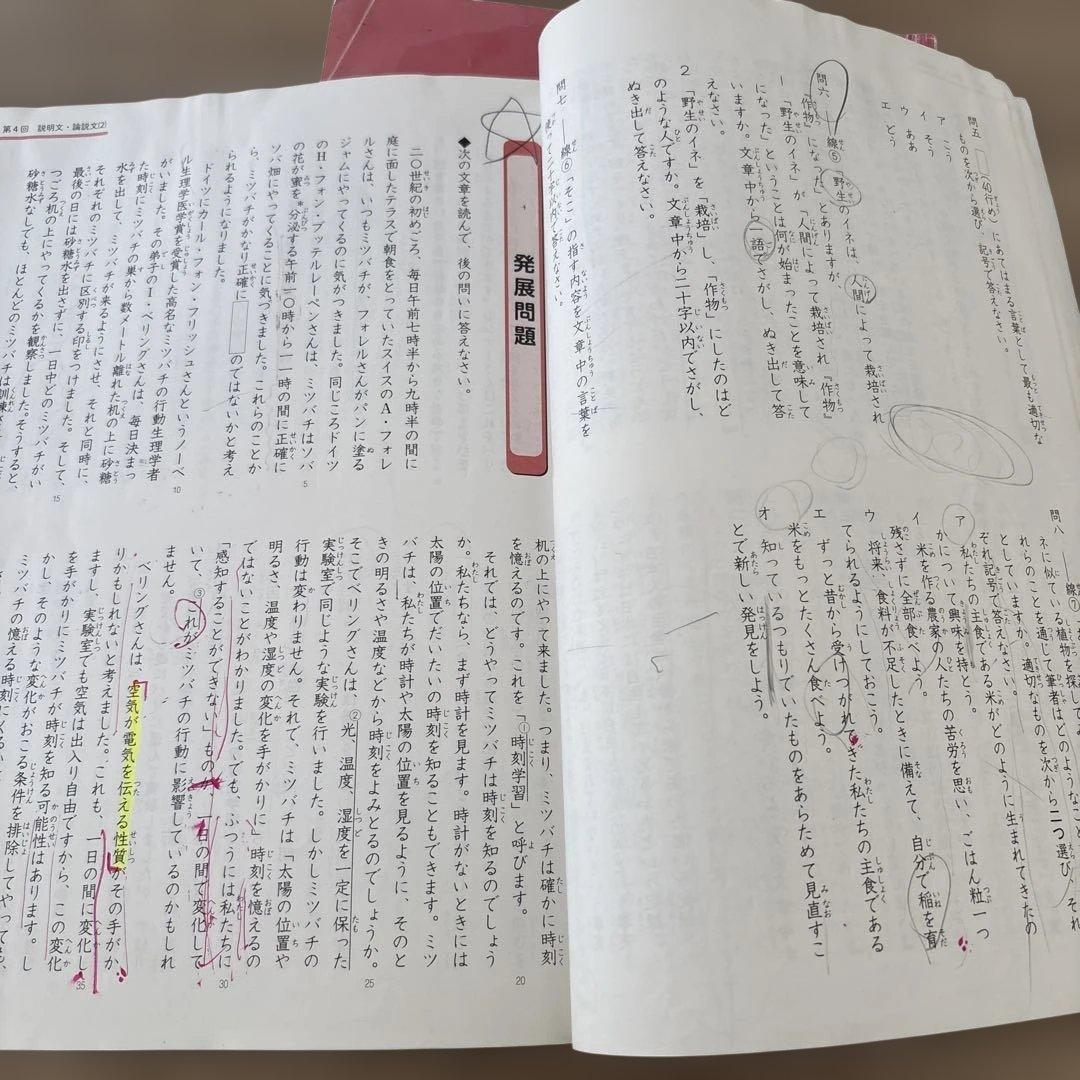 問五　□(40行め)にあてはまる言葉として最も適切な
ものを次から選び、記号で答えなさい。
ア　こう
イ　そう
ウ　ああ
エ　どう
問六　――線⑤「野生のイネは、人間によって栽培され
『作物』になった」とありますが、
1　「野生のイネ」が「人間によって栽培され『作物』
になった」ということは何が始まったことを意味して
いますか。文章中から一語でさがし、ぬき出して答
えなさい。
2　「野生のイネ」を「栽培」し、「作物」にしたのはど
のような人ですか。文章中から二十字以内でさがし、
ぬき出して答えなさい。
問七　――線⑥「そこ」の指す内容を文章中の言葉を
使って二十字以内で答えなさい。
問八　――線⑦
ネに似ている植物を探して
れらのことを通じて筆者はどのようなこと
としていますか。適切なものを次から二つ選び、それ
ぞれ記号で答えなさい。
ア　私たちの主食である米がどのように生まれてきたの
かについて興味を持とう。
イ　米を作る農家の人たちの苦労を思い、ごはん粒一つ
残さずに全部食べよう。
ウ　将来、食料が不足したときに備えて、自分で稲を育
てられるようにしておこう。
エ　ずっと昔から受けつがれてきた私たちの主食である
米をもっとたくさん食べよう。
オ　知っているつもりでいたものをあらためて見直すこ
とで新しい発見をしよう。
第4回　説明文・論説文(2)
発展問題
◆次の文章を読んで、後の問いに答えなさい。
二〇世紀の初めごろ、毎日午前七時半から九時半の間に
庭に面したテラスで朝食をとっていたスイスのA・フォレ
ルさんは、いつもミツバチが、フォレルさんがパンに塗る
ジャムにやってくるのに気がつきました。同じころドイツ
のH・フォン・ブッテルレーペンさんは、ミツバチはソバ
5
の花が蜜を*分泌する午前一〇時から一一時の間に正確に
ソバ畑にやってくることに気づきました。これらのことか
ら、ミツバチがかなり正確に□のではないかと考え
られるようになりました。
ドイツにカール・フォン・フリッシュさんというノーベ
10
ル生理学医学賞を受賞した高名なミツバチの行動生理学者
がいました。その弟子のI・ベリングさんは、毎日決まっ
た時刻にミツバチの巣から数メートル離れた机の上に砂糖
水を出して、ミツバチが来るようにさせ、それと同時に、
それぞれのミツバチに区別する印をつけました。そして、
15
最後の日には砂糖水を出さずに、一日中どのミツバチがい
つごろ机の上にやってくるかを観察しました。そうすると、
砂糖水なしでも、ほとんどのミツバチは訓練
机の上にやって来ました。つまり、ミツバチは確かに時刻
20
を憶えるのです。これを「①時刻学習」と呼びます。
それでは、どうやってミツバチは時刻を知るのでしょう
か。私たちなら、まず時計を見ます。時計がないときには
太陽の位置でだいたいの時刻を知ることもできます。ミツ
バチは、私たちが時計や太陽の位置を見るように、そのと
25
きの明るさや温度などから時刻をよみとるのでしょうか。
そこでベリングさんは、②光、温度、湿度を一定に保った
実験室で同じような実験を行いました。しかしミツバチの
行動は変わりません。それで、ミツバチは「太陽の位置や
明るさ、温度や湿度の変化を手がかりに」時刻を憶えるの
30
ではないことがわかりました。でも、ふつうには私たちに
「感知することができない」ものが、一日の間で変化して
いて、③これがミツバチの行動に影響しているのかもしれ
ません。
ベリングさんは、空気が電気を伝える性質がその手がか
35
りかもしれないと考えました。これも、一日の間に変化し
ますし、実験室でも空気は出入り自由ですから、この変化
を手がかりにミツバチが時刻を知る可能性はあります。し
かし、そのような変化がおこる条件を排除してやっても、
ミツバチの憶える時刻に